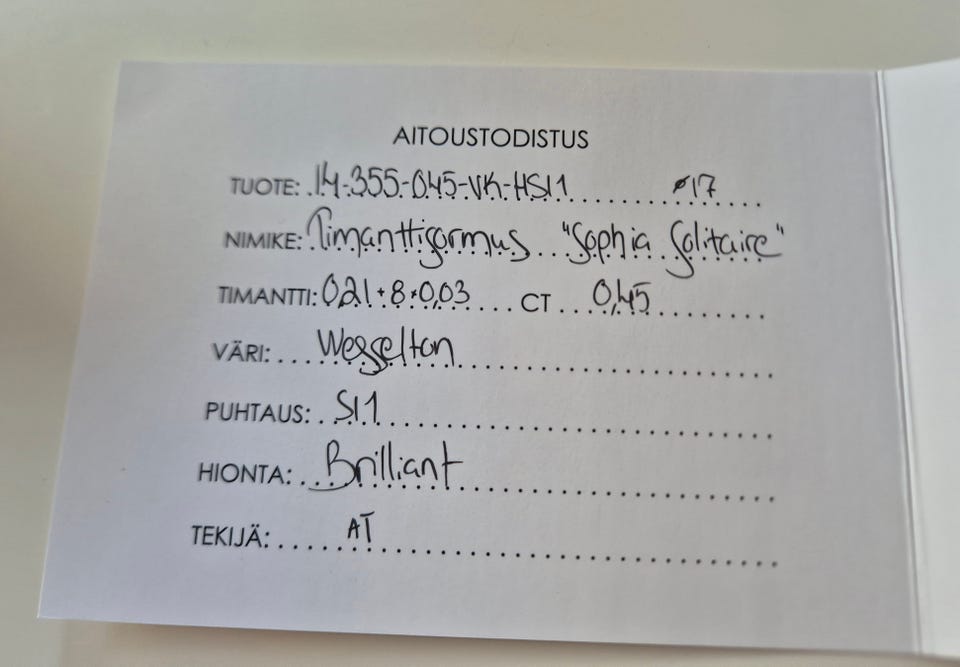 AITOUSTODISTUS
TUOTE: 14-355-045-VK-HSI1 ø17
NIMIKE: Timanttisormus "Sophia Solitaire"
TIMANTTI: 0,21+8*0,03 CT 0,45
VÄRI: Wesselton
PUHTAUS: SI1
HIONTA: Brilliant
TEKIJÄ: AT